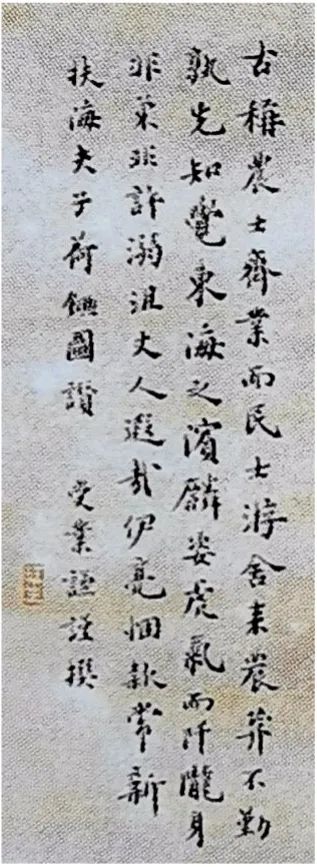 古稱農士齊業而民士游舍耒農弃不勤
孰先知覺東海之濱麟姿虎氣而阡隴身
非巢非許溺沮丈人遐哉伊亮悃款常新
扶海夫子荷圖讚 受業謙謹撰